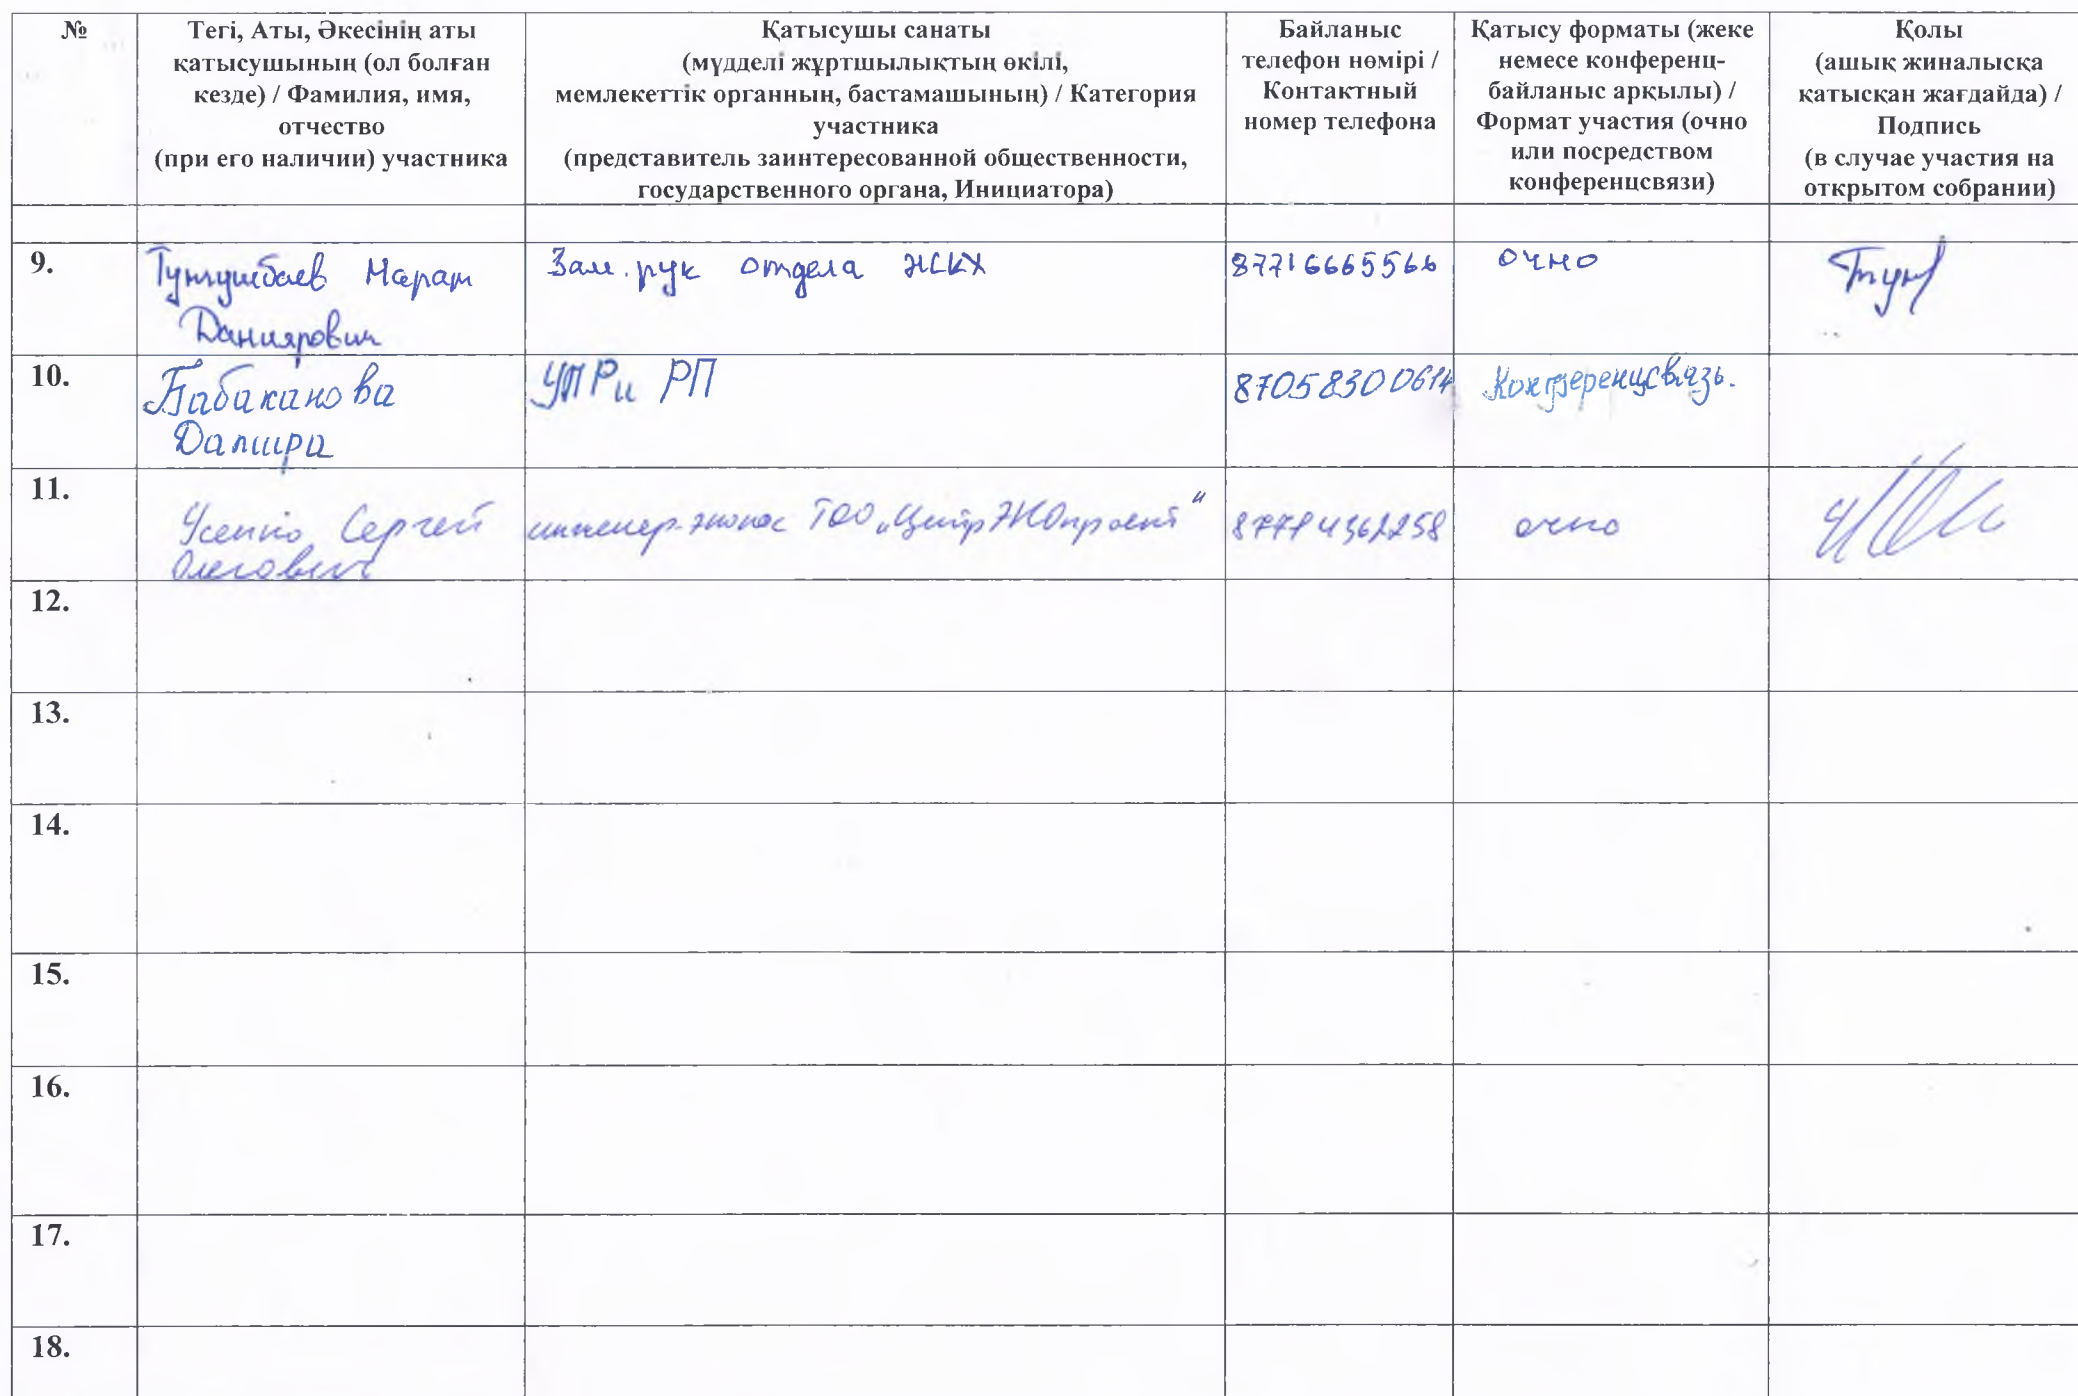 №
Тегі, Аты, Әкесінің аты
қатысушының (ол болған
кезде) / Фамилия, имя,
отчество
(при его наличии) участника
Қатысушы санаты
(мүдделі жұртшылықтың өкілі,
мемлекеттік органның, бастамашының) / Категория
участника
(представитель заинтересованной общественности,
государственного органа, Инициатора)
Байланыс
телефон нөмірі /
Контактный
номер телефона
Қатысу форматы (жеке
немесе конференц-
байланыс арқылы) /
Формат участия (очно
или посредством
конференцсвязи)
Қолы
(ашық жиналысқа
қатысқан жағдайда) /
Подпись
(в случае участия на
открытом собрании)
9.
Тунгушбаев Марат
Даниярович
Зам. рук отдела ЖКХ
87716665566
очно
10.
Бабаканова
УПРи РП
87058300614
Конференцсвязь.
11.
Усенко Сергей
Олегович
инженер-эколог ТОО „ЦентрЭКОпроект"
очно
12.
13.
14.
15.
16.
17.
18.